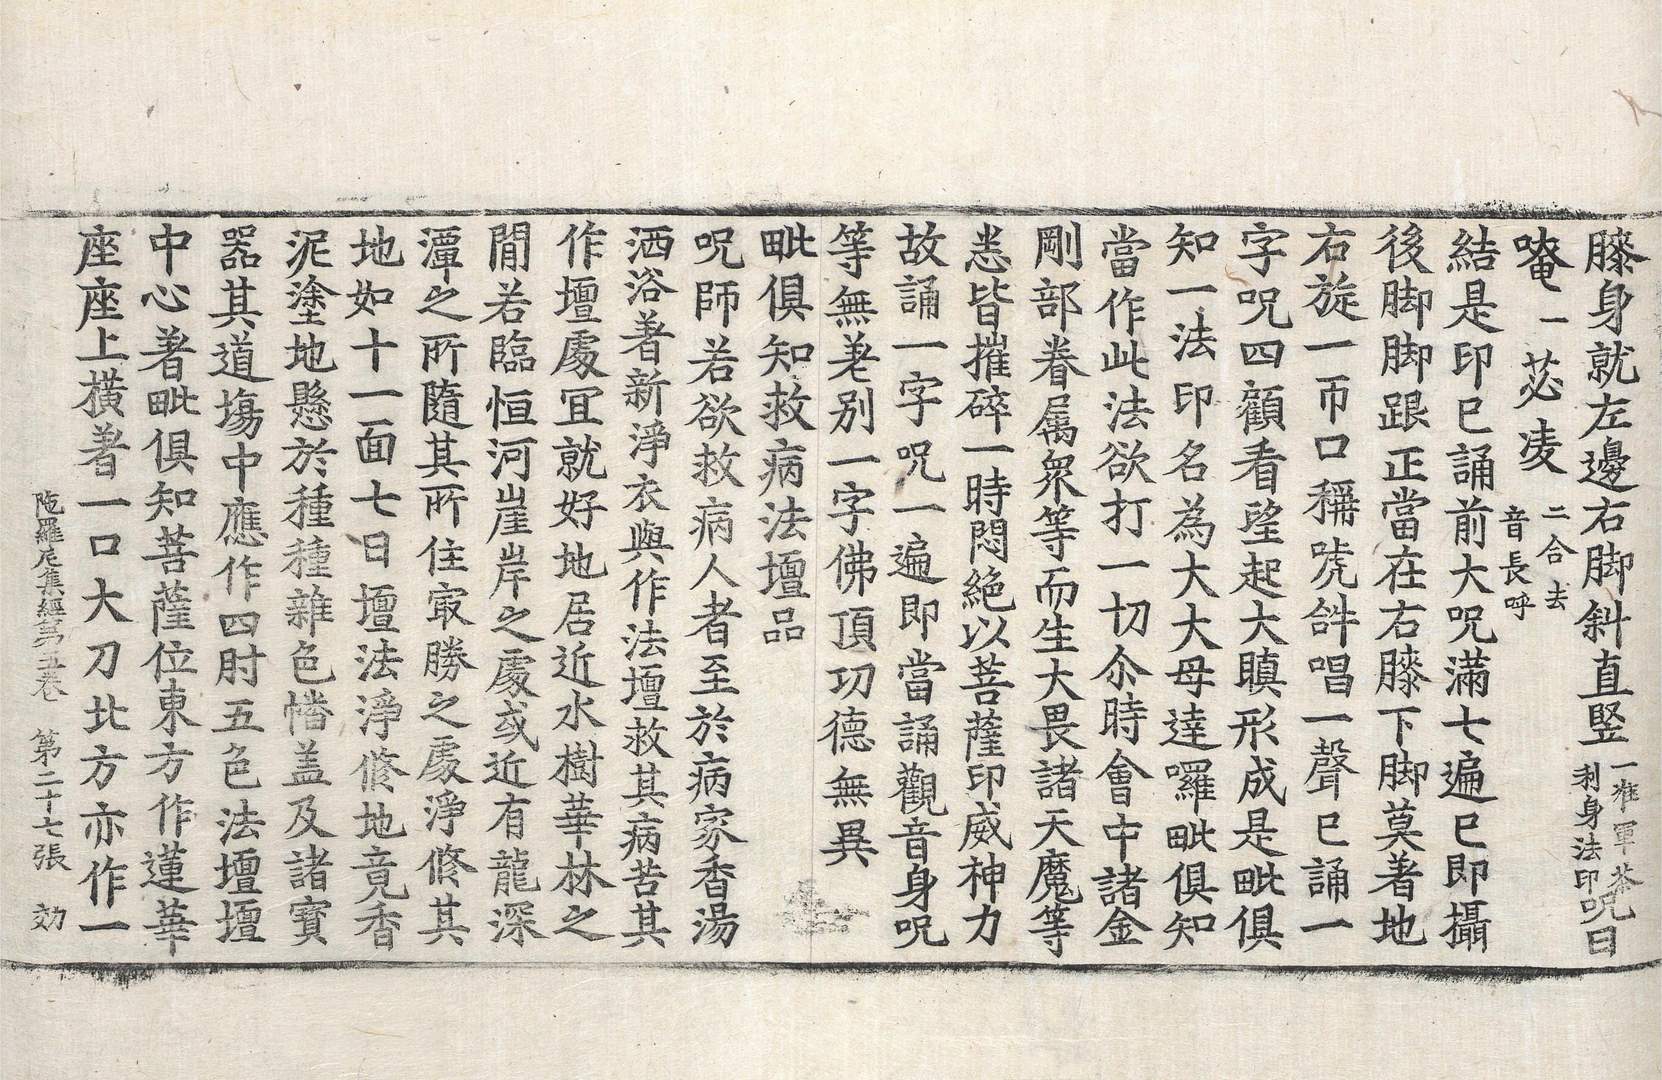 膝身就左邊右脚斜直竪一准軍茶利身法印呪曰
唵一苾凌二合去音長呼
結是印已誦前大呪滿七遍已即攝
後脚脚跟正當在右膝下脚莫著地
右旋一帀口稱唬𤙖唱一聲已誦一
字呪四顧看望起大瞋形成是毗俱
知一法印名為大大母達囉毗俱知
當作此法欲打一切尒時會中諸金
剛部眷属衆等而生大畏諸天魔等
悉皆摧碎一時悶絕以菩薩印威神力
故誦一字呪一遍即當誦觀音身呪
等無差別一字佛頂功德無異
毗俱知救病法壇品
呪師若欲救病人者至於病家香湯
洒浴著新淨衣與作法壇救其病苦其
作壇處冝就好地居近水樹華林之
閒若臨恒河崖岸之處或近有龍深
潭之所隨其所住㝡勝之處淨修其
地如十一面七日壇法淨修地竟香
泥塗地懸於種種雜色幡盖及諸寶
器其道塲中應作四肘五色法壇壇
中心著毗俱知菩薩位東方作蓮華
座座上橫著一口大刀北方亦作一
陁羅尼集經第五卷 第二十七張 効